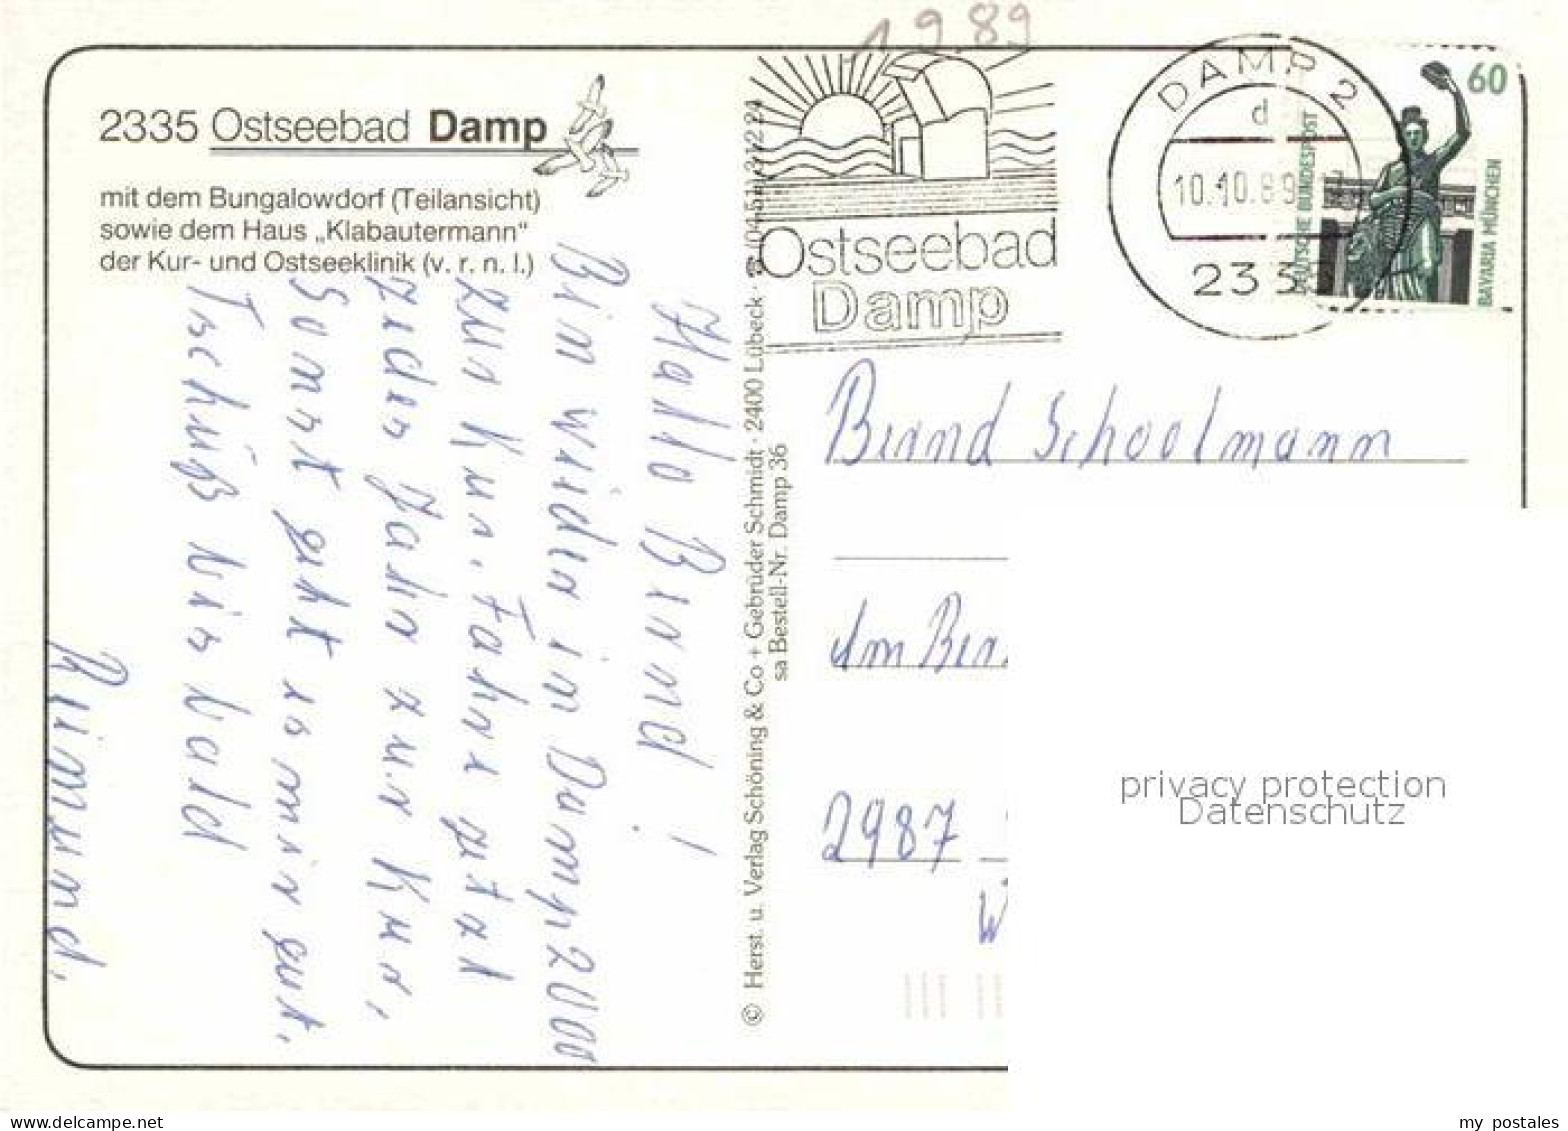 1989
2335 Ostseebad Damp
mit dem Bungalowdorf (Teilansicht)
sowie dem Haus „Klabautermann“
der Kur- und Ostseeklinik (v. r. n. l.)
Hallo Bernd!
Bin wieder im Damp 2000
zur Kur. Fahre jetzt
jeder Jahr zur Kur,
Sonst geht es mir gut.
Tschüß bis bald
Reimund,
© Herst. u. Verlag Schöning & Co + Gebrüder Schmidt · 2400 Lübeck ·
sa Bestell-Nr. Damp 36
Ostseebad
Damp
DAMP 2
d
10.10.89
233
60
DEUTSCHE BUNDESPOST
BAVARIA MÜNCHEN
Bernd Schoolmann
Am
2987
privacy protection
Datenschutz
delcampe.net
my postales